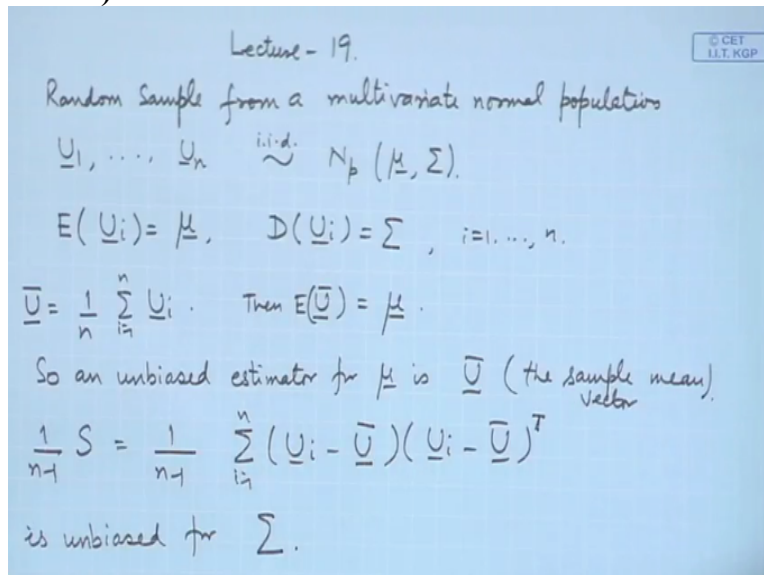 Lecture - 19.
© CET
I.I.T. KGP
Random Sample from a multivariate normal population
U̲₁, ...., U̲ₙ i.i.d. ~ Nₚ (μ̲, Σ).
E(U̲i) = μ̲, D(U̲i) = Σ, i=1, ..., n.
U̲̅ = 1/n Σᵢ₌₁ⁿ U̲i. Then E(U̲̅) = μ̲.
So an unbiased estimator for μ̲ is U̲̅ (the sample mean).
vector
1/(n-1) S = 1/(n-1) Σᵢ₌₁ⁿ (U̲i - U̲̅)(U̲i - U̲̅)ᵀ
is unbiased for Σ.